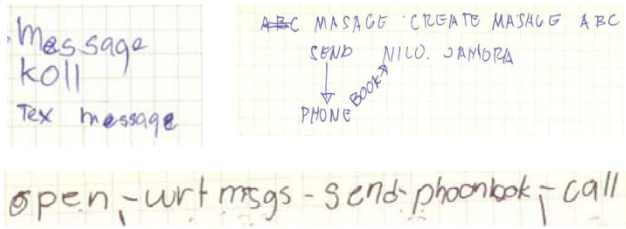 Message
koll
Tex message
ABC MASAGE CREATE MASAGE ABC
SEND NILO. JAMORA
PHONE BOOK
open-wrt msgs-send-phoonbok-call